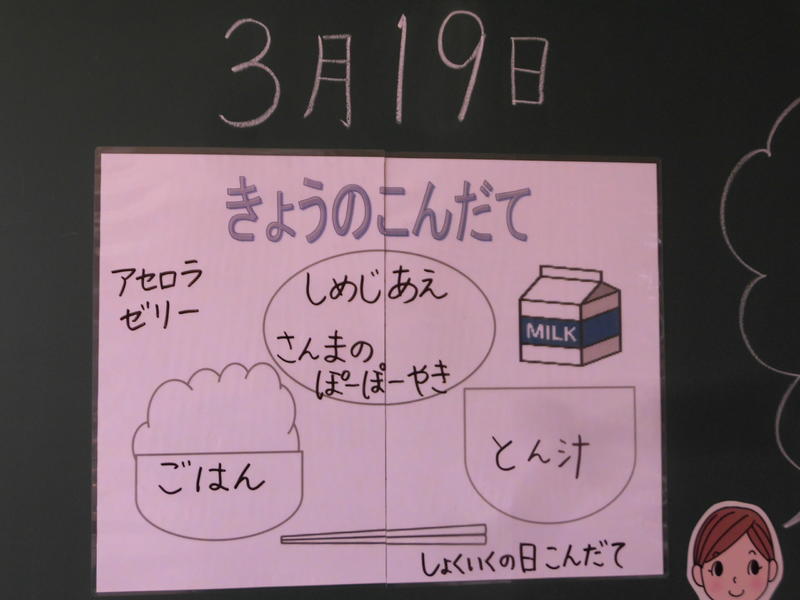 3月19日
きょうのこんだて
アセロラ
ゼリー
しめじあえ
さんまの
ぽーぽーやき
MILK
ごはん
とん汁
しょくいくの日こんだて